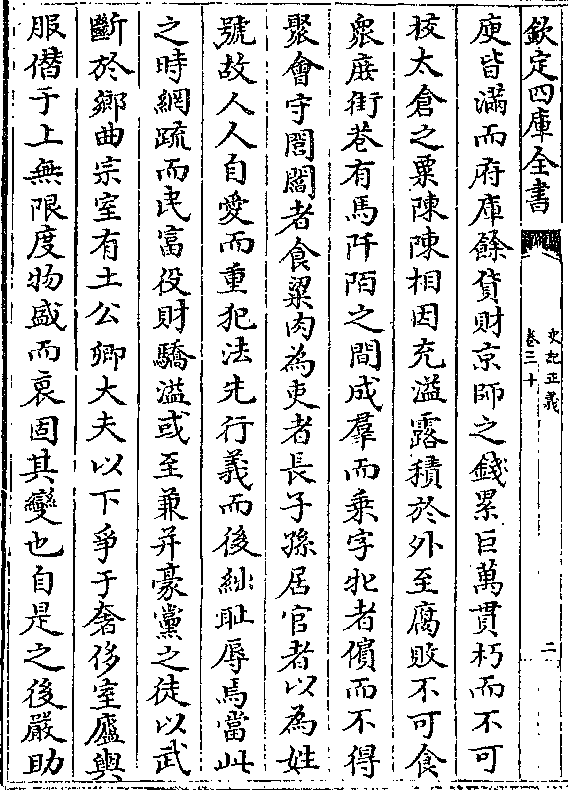 欽定四庫全書
史記正義
卷三十
二
庾皆滿而府庫餘貨財京師之錢累巨萬貫朽而不可
校太倉之粟陳陳相因充溢露積於外至腐敗不可食
衆庶街巷有馬阡陌之間成羣而乗字牝者儐而不得
聚會守閭閻者食粱肉為吏者長子孫居官者以為姓
號故人人自愛而重犯法先行義而後絀耻辱焉當此
之時網疏而民富役財驕溢或至兼并豪黨之徒以武
斷於鄉曲宗室有土公卿大夫以下爭于奢侈室廬輿
服僭于上無限度物盛而衰固其變也自是之後嚴助